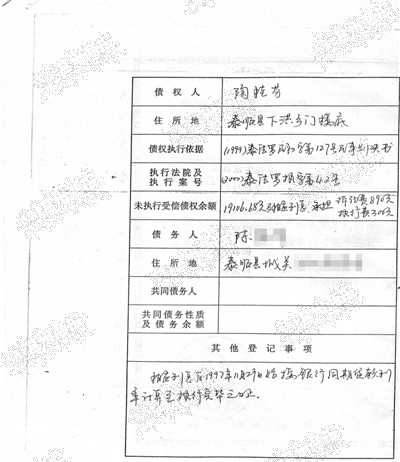 债权人 陶桂芬
住所地 泰顺县下洪乡门楼底
债权执行依据 (1999)泰法罗民初字第127号民事判决书
执行法院及执行案号 (2000)泰法罗执字第42号
未执行受偿债权余额 19106.68元及 利息、承担 诉讼费890元 执行费300元
债务人 陈
住所地 泰顺县城关
共同债务人
共同债务性质
及债务余额
其他登记事项
利息自1997年11月29日始按银行同期贷款利
率计算至执行完毕之日止.